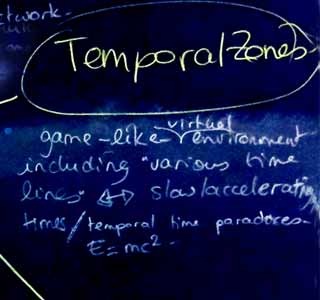 twork-
Temporal Zones
virtual
game-like- environment
including "various time
lines" <-> slow/accelerating
times/temporal time paradoxes-
E=mc²-